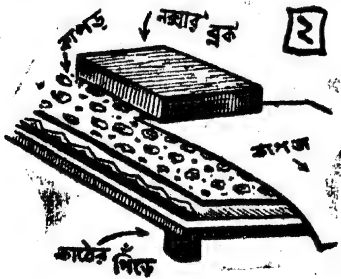 কাপড়
নক্সার
ব্লক
২
কাগজ
কাঠের
পিঁড়ে